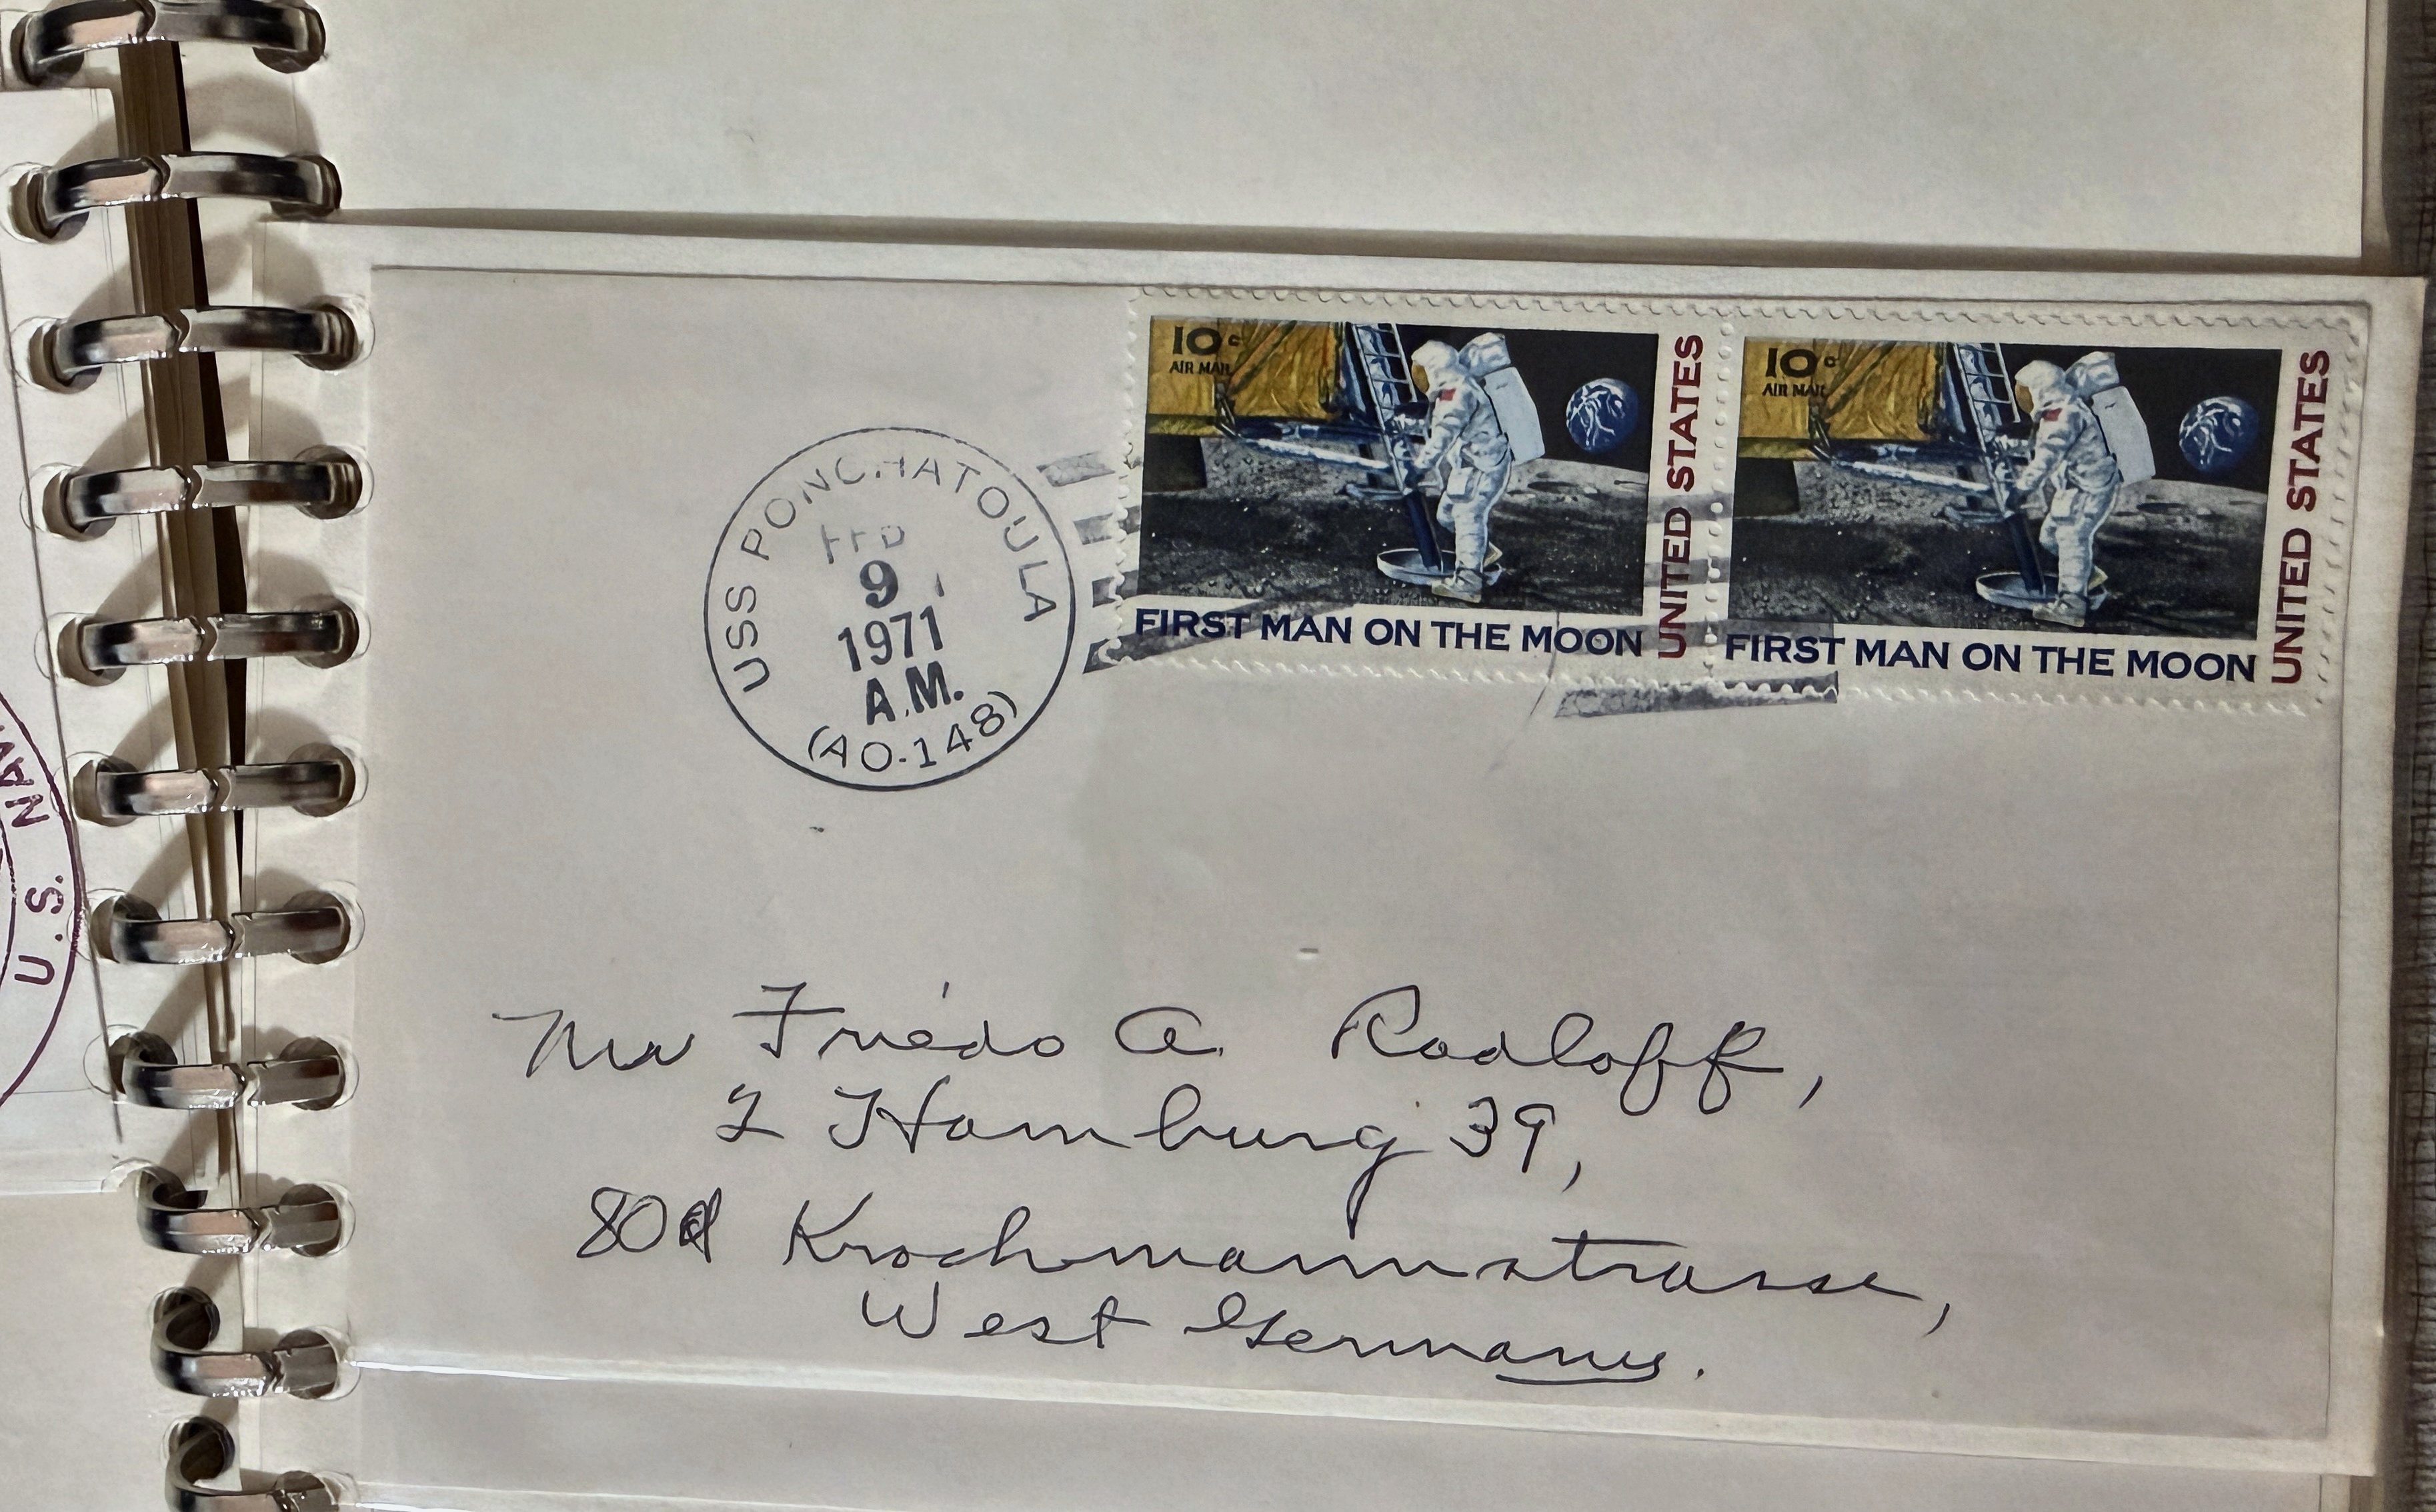 10c
AIR MAIL
UNITED STATES
FIRST MAN ON THE MOON
10c
AIR MAIL
UNITED STATES
FIRST MAN ON THE MOON
USS PONCHATOULA
FEB
9
1971
A.M.
(AO-148)
Mr Friedo A. Radloff,
2 Hamburg 39,
80d Krochmannstrasse,
West Germany.
U.S. NAV